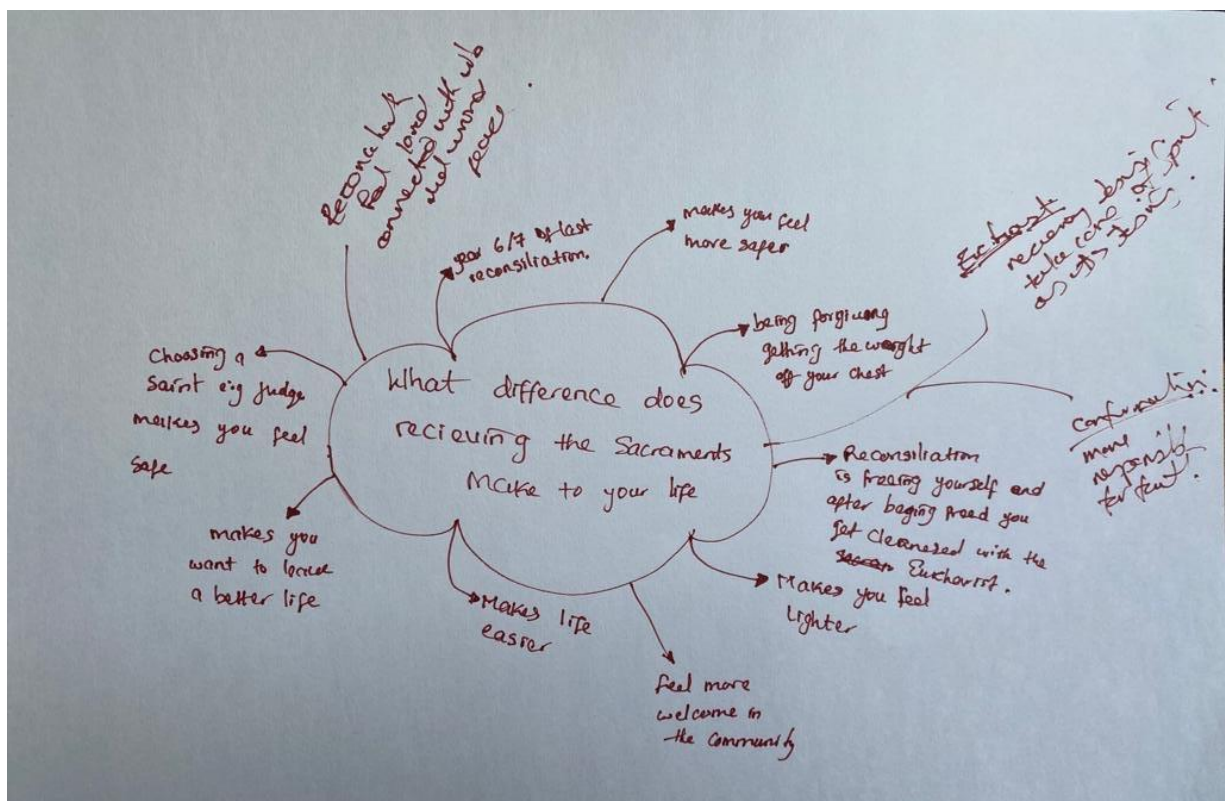 What difference does
recieving the Sacraments
Make to your life
feel loved
connected with
year 6/7 of last
reconsiliation.
makes you feel
more safer
being forgiving
getting the weight
off your chest
receiving
take care of
confirmation:
more
responsible
for
Reconsiliation
is freeing yourself and
after beging freed you
get cleanesed with the
Eukcharist.
Makes you feel
lighter
feel more
welcome in
the community
Makes life
easier
makes you
want to
a better life
Choosing a
Saint e.g Judge
makes you feel
safe